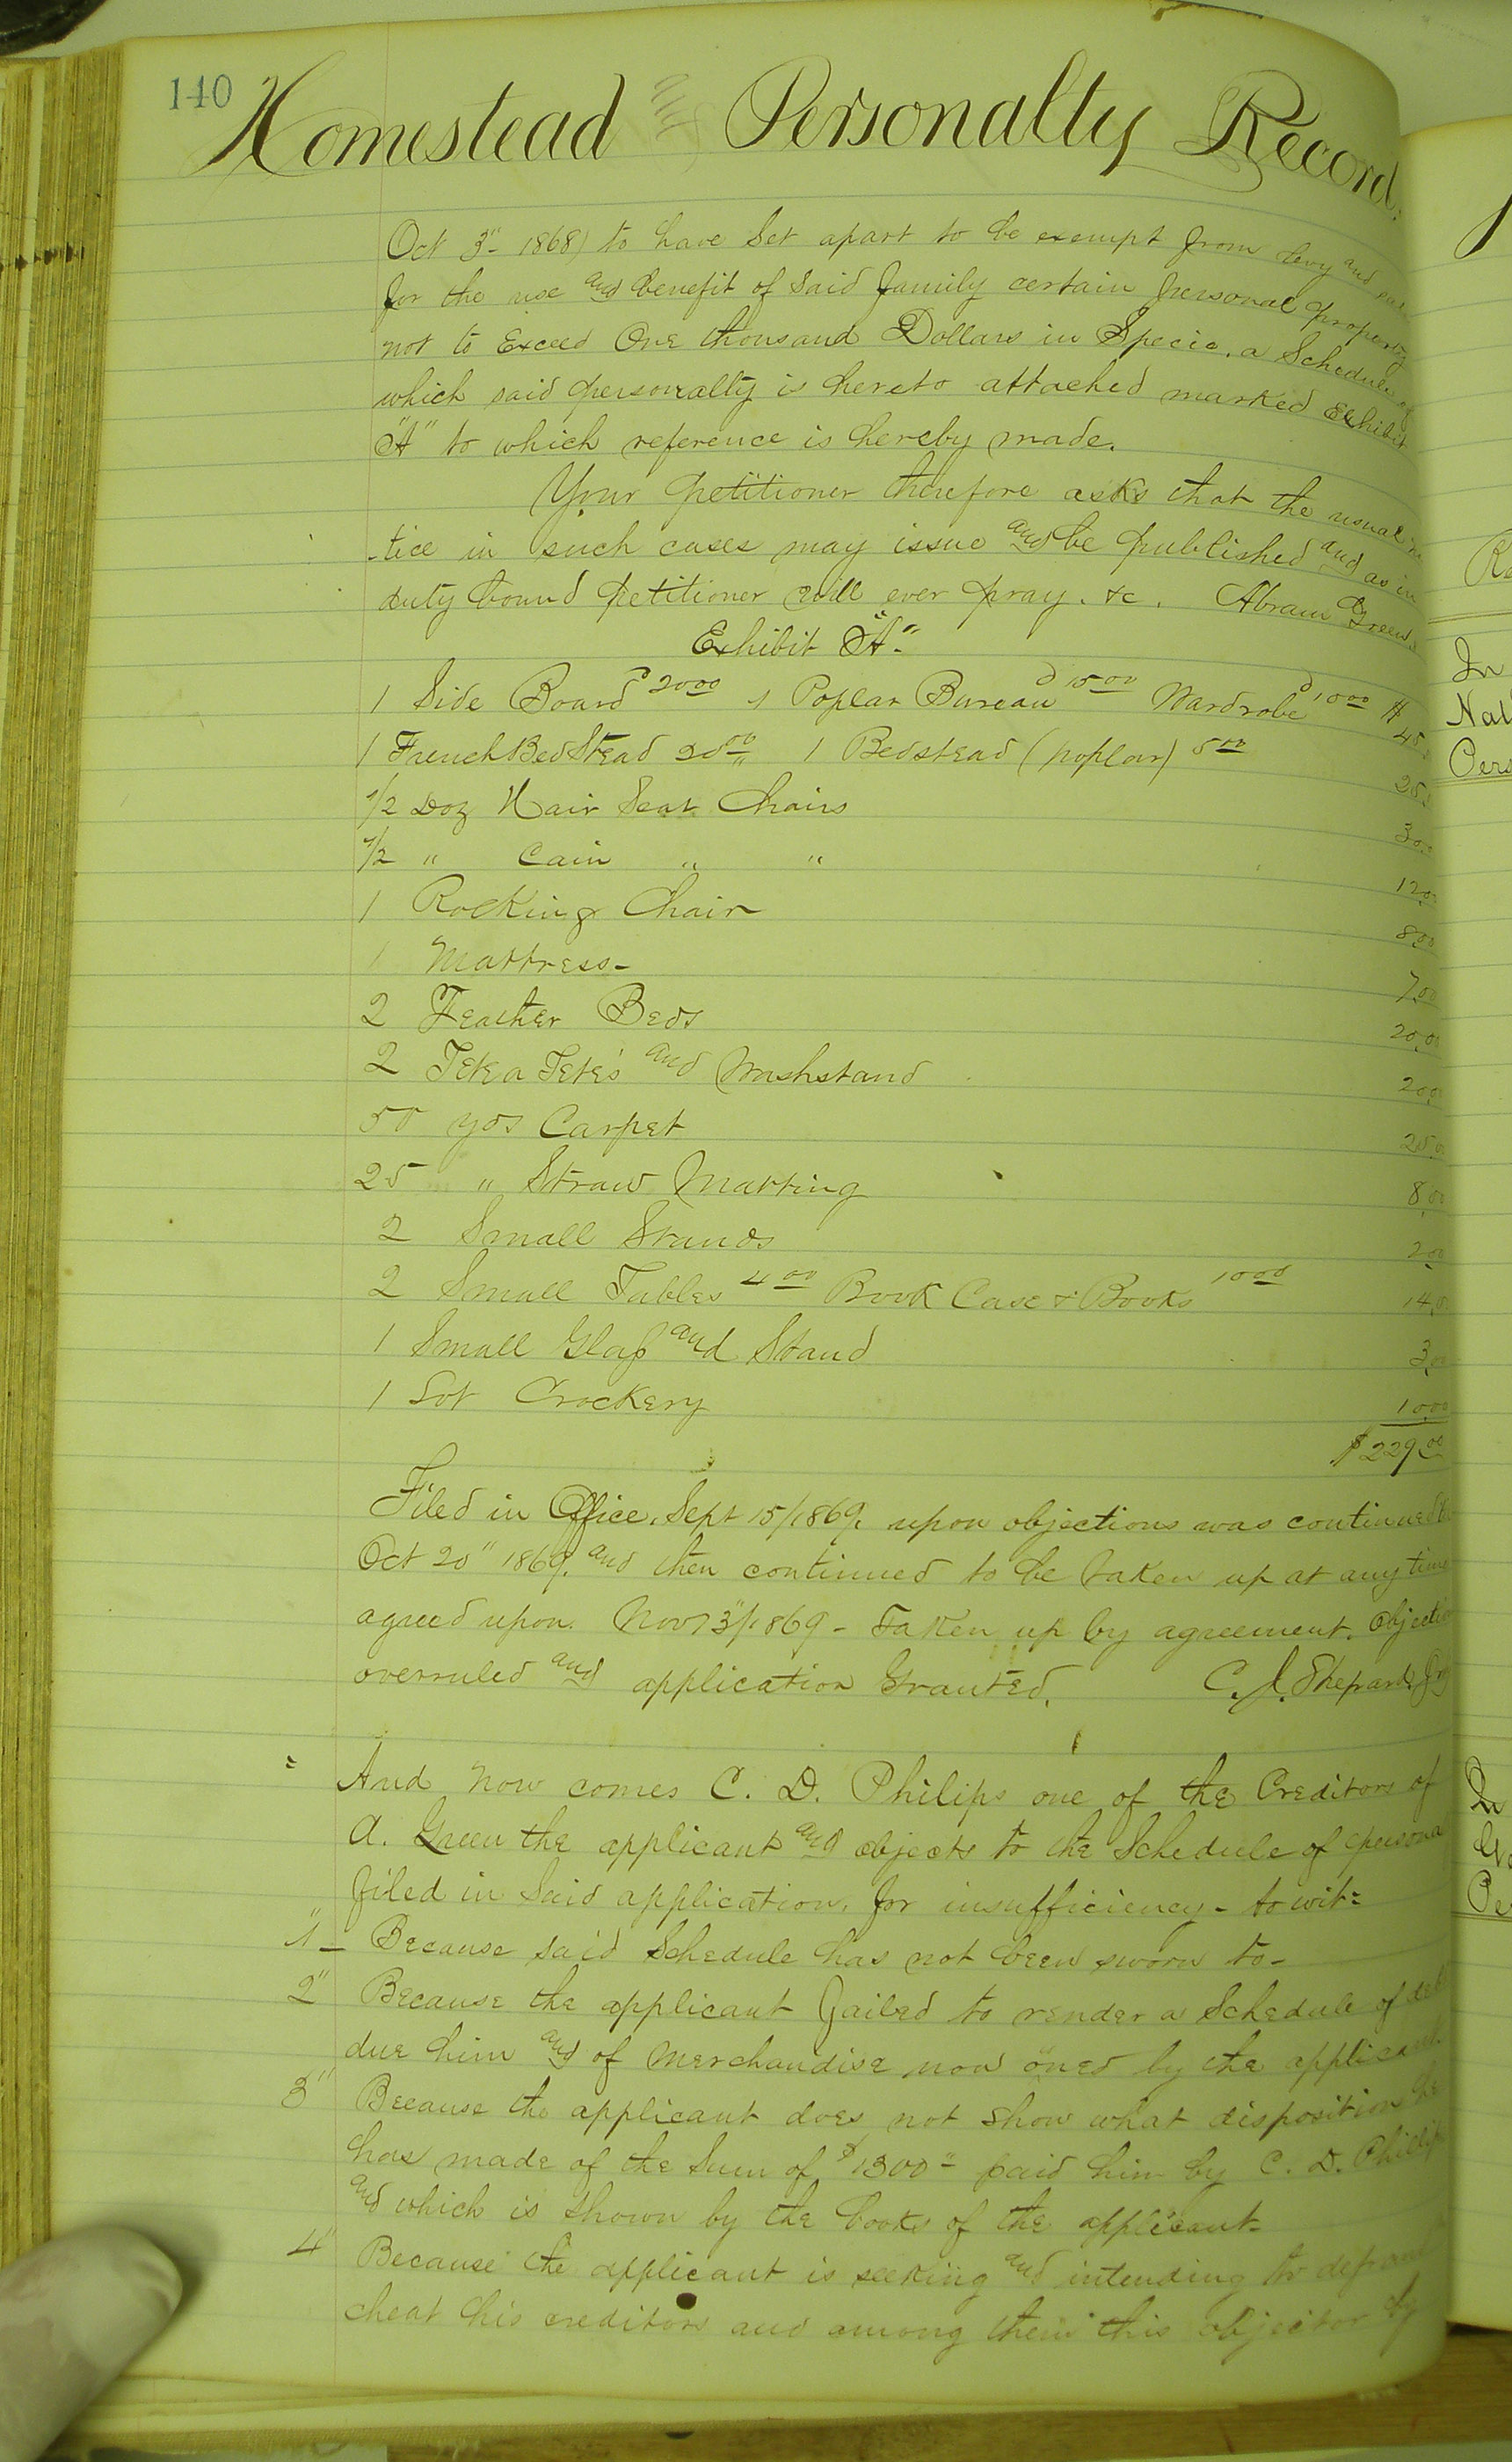 140
Homestead and Personalty Record.
Oct 3" 1868) to have Set apart to be exempt from levy and sale
for the use and benefit of said family certain personal property
not to Exceed One thousand Dollars in Specie, a Schedule of
which said personalty is hereto attached marked Exhibit
"A" to which reference is hereby made.
Your petitioner therefore asks that the usual no
tice in such cases may issue and be published and as in
duty bound petitioner will ever pray. &c. Abram Green.
Exhibit "A"
1 Side Board 20 00 1 Poplar Bureau 15 00 Wardrobe 10 00 $ 45.
1 French BedStead 20 00 1 Bedstead (poplar) 5 00 25.
1/2 Doz Hair Seat Chairs 30.
1/2 " Cain " " 12.00
1 Rocking Chair 8.00
1 Mattress - 7.00
2 Feather Beds 20.00
2 Tete a Tete's and Washstand 20.0
50 yds Carpet 25.0
25 " Straw Matting 8.00
2 Small Stands 2.00
2 Small Tables 4 00 Book Case & Books 10 00 14.0
1 Small Glass and Stand 3.00
1 Lot Crockery 10.00
$229.00
Filed in Office, Sept 15/1869, upon objections was continued to
Oct 20" 1869, and then continued to be taken up at any time
agreed upon. Nov 13"/1869 - Taken up by agreement. Objectio
overruled and application Granted. C. J. Shepard,
And now comes C. D. Philips one of the Creditors of
A. Green the applicant and objects to the Schedule of persona
filed in Said application, for insufficiency - to wit:
1 - Because said Schedule has not been sworn to -
2" Because the applicant failed to render a Schedule of debt
due him and of Merchandise now oned by the applicant
3" Because the applicant does not show what disposition he
has made of the Sum of $1300" paid him by C. D. Phillip
and which is shown by the books of the applicant -
4" Because the applicant is seeking and intending to defraud
cheat his creditors and among them this objector by